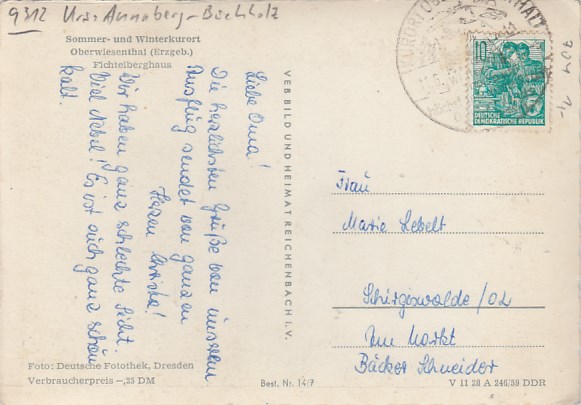 9312 Krs. Annaberg-Buchholz
Sommer- und Winterkurort
Oberwiesenthal (Erzgeb.)
Fichtelberghaus
Liebe Oma!
Die herzlichsten Grüße von unserem
Ausflug sendet von ganzem
Herzen Christa!
Wir haben ganz schlechte Sicht.
Viel Nebel! Es ist auch ganz schön
kalt.
VEB BILD UND HEIMAT REICHENBACH I. V.
10
DEUTSCHE
DEMOKRATISCHE REPUBLIK
Frau
Maria Lebelt
Schirgiswalde/OL
Am Markt
Bäcker Schneider
Foto: Deutsche Fotothek, Dresden
Verbraucherpreis -,25 DM
Best. Nr. 14/7
V 11 28 A 246/59 DDR